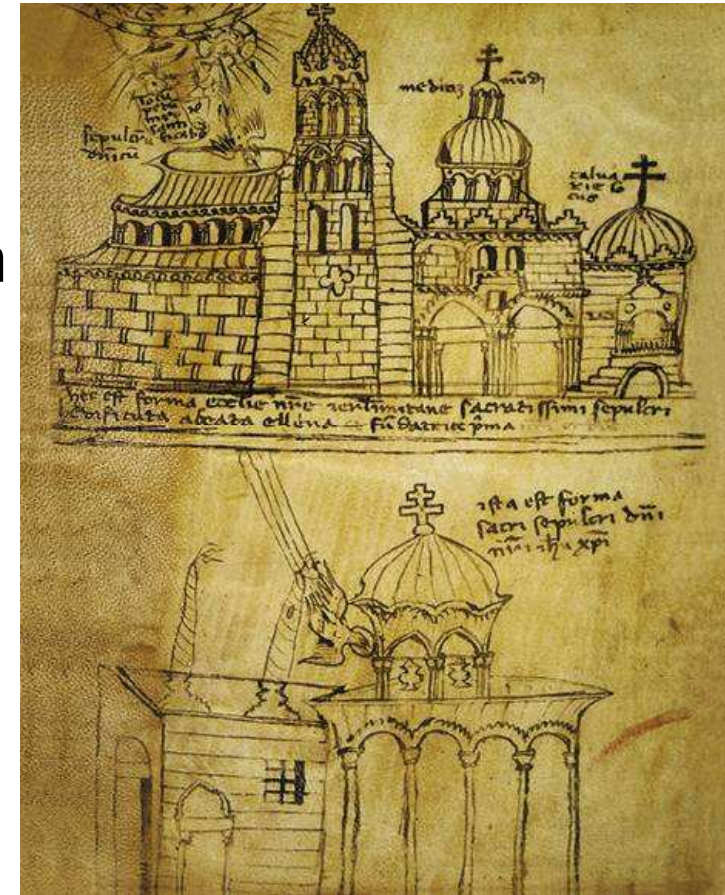 n
sepulcrū
dn̄icū
medioȝ mūdi
calua
rie lo
cus
hec est forma ecclīe nr̄e ierl̄imitane sacratissimi sepulcri
hedificata abeata ellena fūdatrice p̄ma
ista est forma
sacri sepulcri dn̄i
nr̄i ih̄u xp̄i